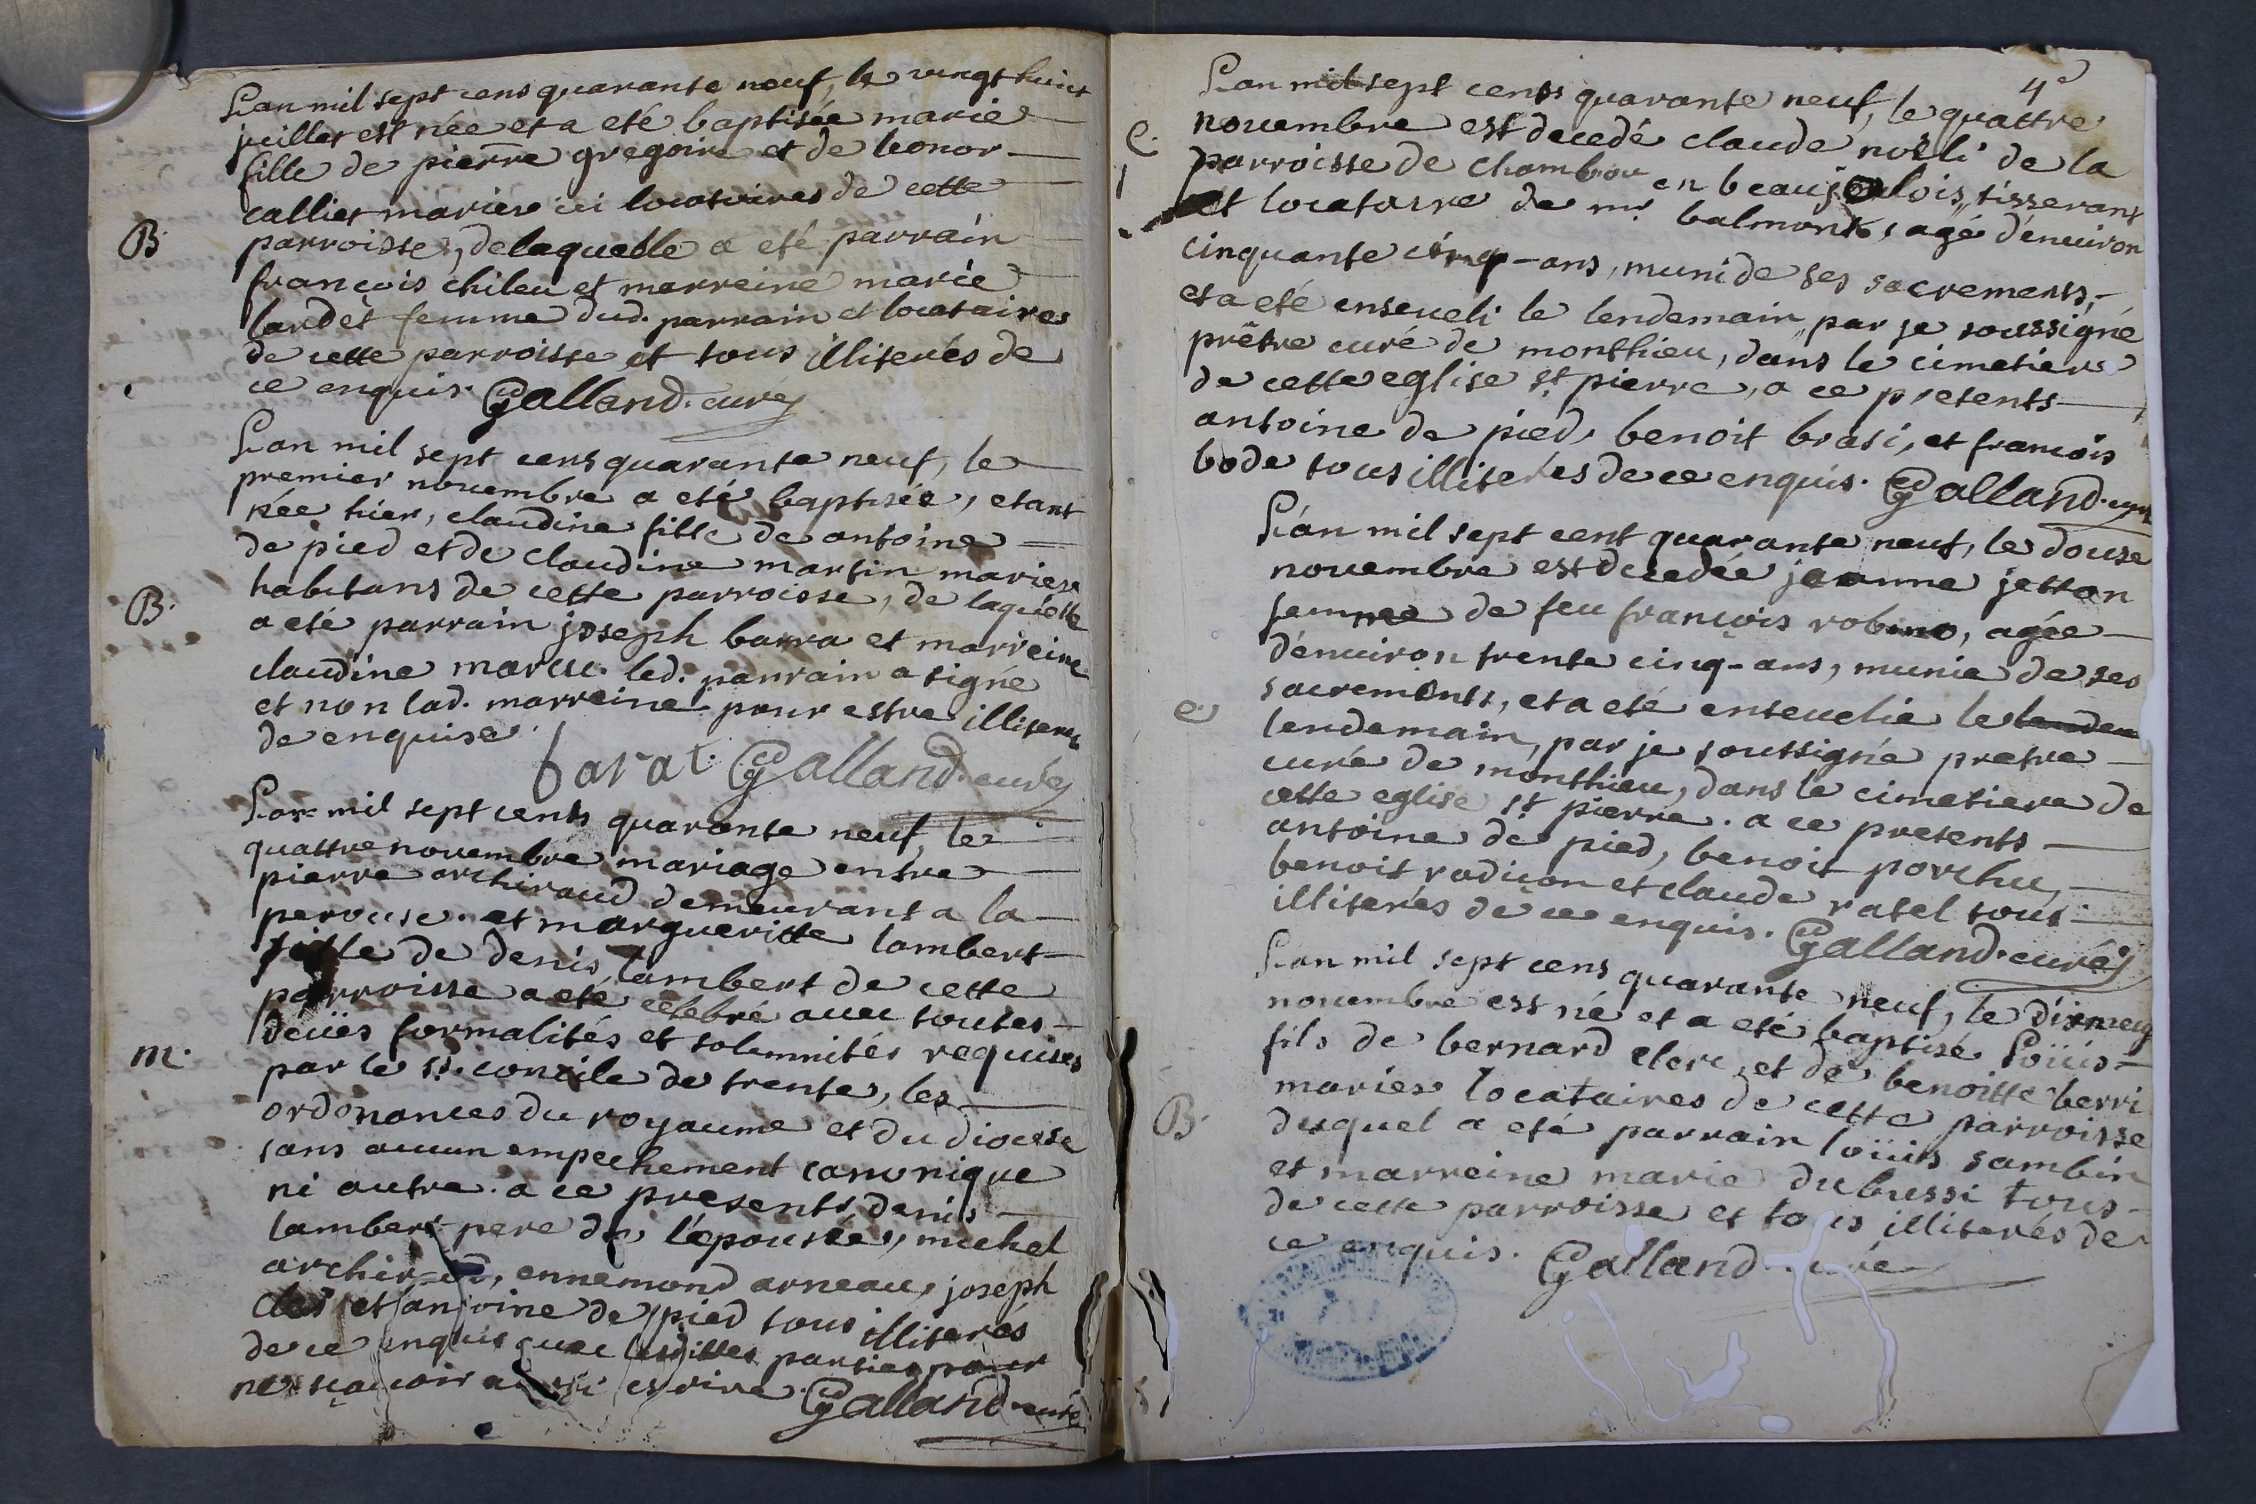 L'an mil sept cens quarante neuf, le vingt huict
juillet est née et a eté baptisée marie
fille de pierre gregoire et de leonor
calliet mariés ici locatoires de cette
B. parroisse, de laquelle a eté parrain
francois chileu et marreine marie
lardet femme dud. parrain et locataires
de cette parroisse et tous illiterés de
ce enquis. Galland. curé
L'an mil sept cens quarante neuf, le
premier novembre a eté baptisée, etant
née hier, claudine fille de antoine
de pied et de claudine martin mariés
B. habitans de cette parroisse, de laquelle
a eté parrain joseph barra et marreine
claudine led. parrain a signé
et non lad. marreine pour estre illiteree
de enquise.
barat. Galland. curé
L'an mil sept cents quarante neuf, le
quattre novembre mariage entre
pierre archiraud demeurant a la
perouse. et margueritte lambert
fille de denis lambert de cette
parroisse a eté celebré avec toutes
deües formalités et solemnités requises
m. par le st. concile de trente, les
ordonances du royaume et du diocese
sans aucun empechement canonique
ni autre. a ce presents denis
lambert pere de l'épousée, michel
archiraud, ennemond arneau, joseph
et antoine de pied tous illiterés
de ce enquis avec lesdittes parties pour
ne sçavoir aussi escrire. Galland curé
4e
L'an mil sept cents quarante neuf, le quattre
e. novembre est decedé claude noëli de la
parroisse de chambou en beaujolois, tisserant
et locatoire de mr. balmont, agé d'environ
cinquante cinq-ans, muni de ses sacrements,
et a eté enseveli le lendemain par je soussigné
prêtre curé de monthieu, dans le cimetiere
de cette eglise st. pierre, a ce presents
antoine de pied, benoit brasi, et francois
bode tous illiterés de ce enquis. Galland. curé
L'an mil sept cent quarante neuf, le douse
novembre est decedée jeanne jetton
femme de feu françois robino, agée
d'environ trente cinq-ans, munie de ses
e. sacrements, et a eté ensevelie le landem
lendemain, par je soussigné pretre
curé de monthieu, dans le cimetiere de
cette eglise st pierre. a ce presents
antoine de pied, benoit porchu,
benoit radicon et claude ratel tous
illiterés de ce enquis. Galland. curé
L'an mil sept cens quarante neuf, le dixneuf
novembre est né et a eté baptisé Loüis
fils de bernard clerc, et de benoitte berri
mariés locataires de cette parroisse
B. duquel a eté parrain loüis sambin
et marreine marie dubussi tous
de cette parroisse et tous illiterés de
ce enquis. Galland curé